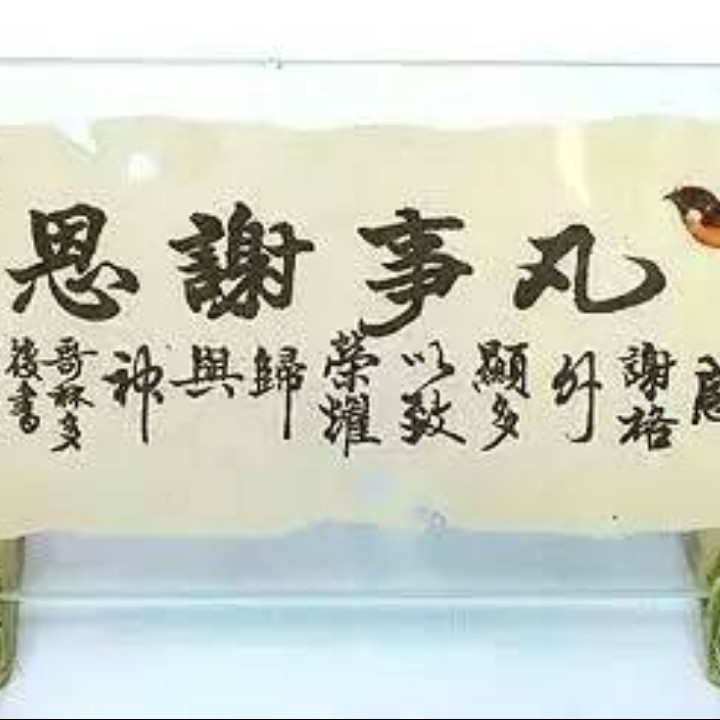 凡事謝恩
謝格外顯多以致榮耀歸與神
哥林多
後書